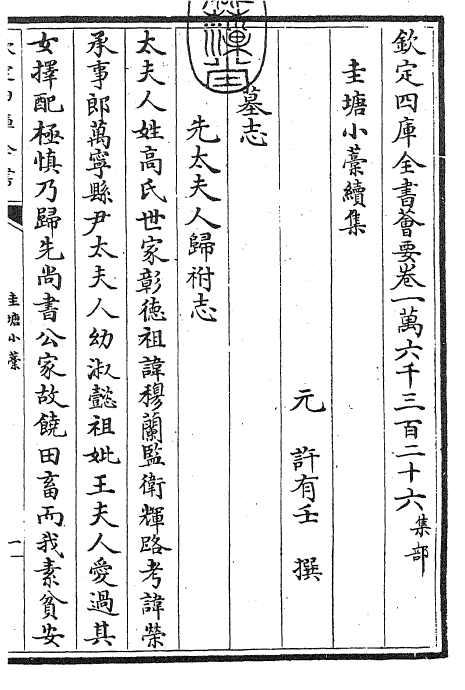 欽定四庫全書薈要卷一萬六千三百二十六集部
圭塘小藁續集
元　許有壬　撰
墓志
先太夫人歸祔志
太夫人姓高氏世家彰德祖諱穆蘭監衛輝路考諱榮
承事郎萬寧縣尹太夫人幼淑懿祖妣王夫人愛過其
女擇配極慎乃歸先尚書公家故饒田畜而我素貧安
圭塘小藁
一